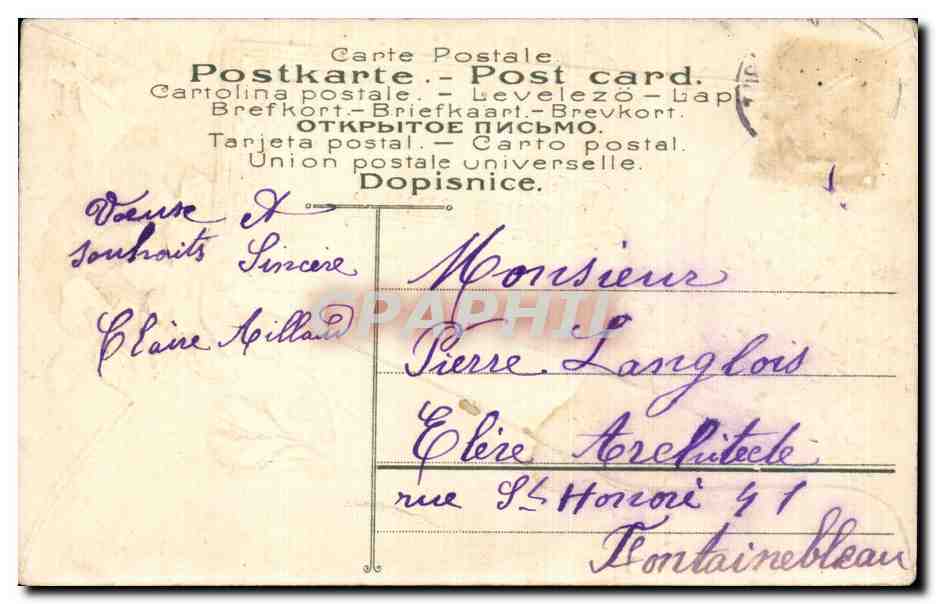 Carte Postale.
Postkarte. - Post card.
Cartolina postale. - Levelező - Lap
Brefkort. - Briefkaart. - Brevkort.
ОТКРЫТОЕ ПИСЬМО.
Tarjeta postal. - Carto postal.
Union postale universelle.
Dopisnice.
et
souhaits Sincère
Claire Aillaud
Monsieur
Pierre Langlois
Elève Architecte
rue St Honoré 41
Fontainebleau
GRAPHIL